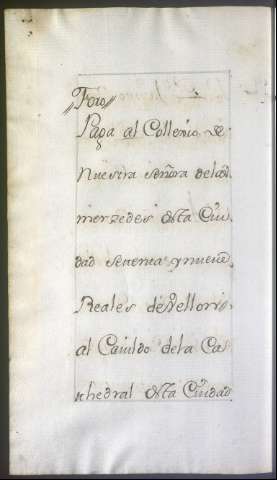 "Foro"
Paga al Collexio de
Nuestra señora de las
merzedes desta Ciu
dad setenta y nueve
Reales de Vellon
al Cavildo de la Ca
thedral desta Ciudad